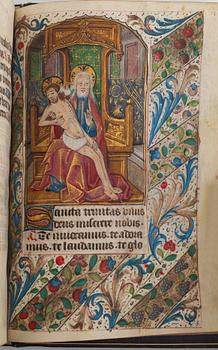 Sancta trinitas vnus
deus miserere nobis.
Te inuocamus. te adora
mus. te laudamus. te glo